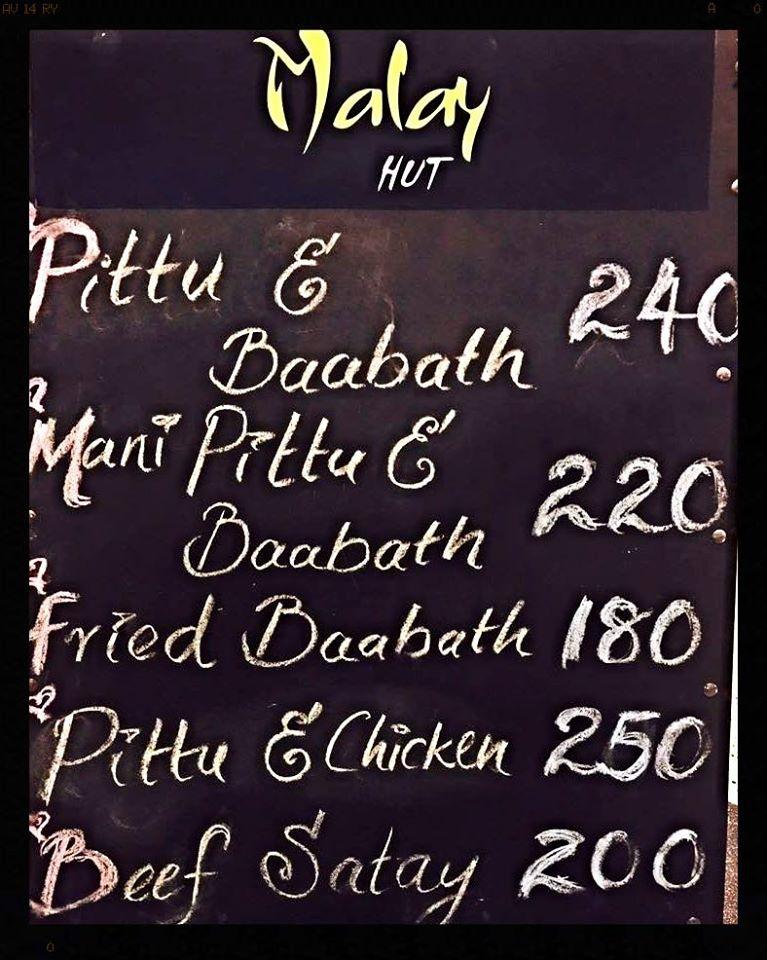 AV 14 RY
A 0
Malay
HUT
Pittu &
Baabath 240
Mani Pittu &
Baabath 220
Fried Baabath 180
Pittu & Chicken 250
Beef Satay 200
0